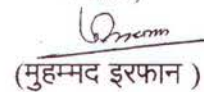 (मुहम्मद इरफान )